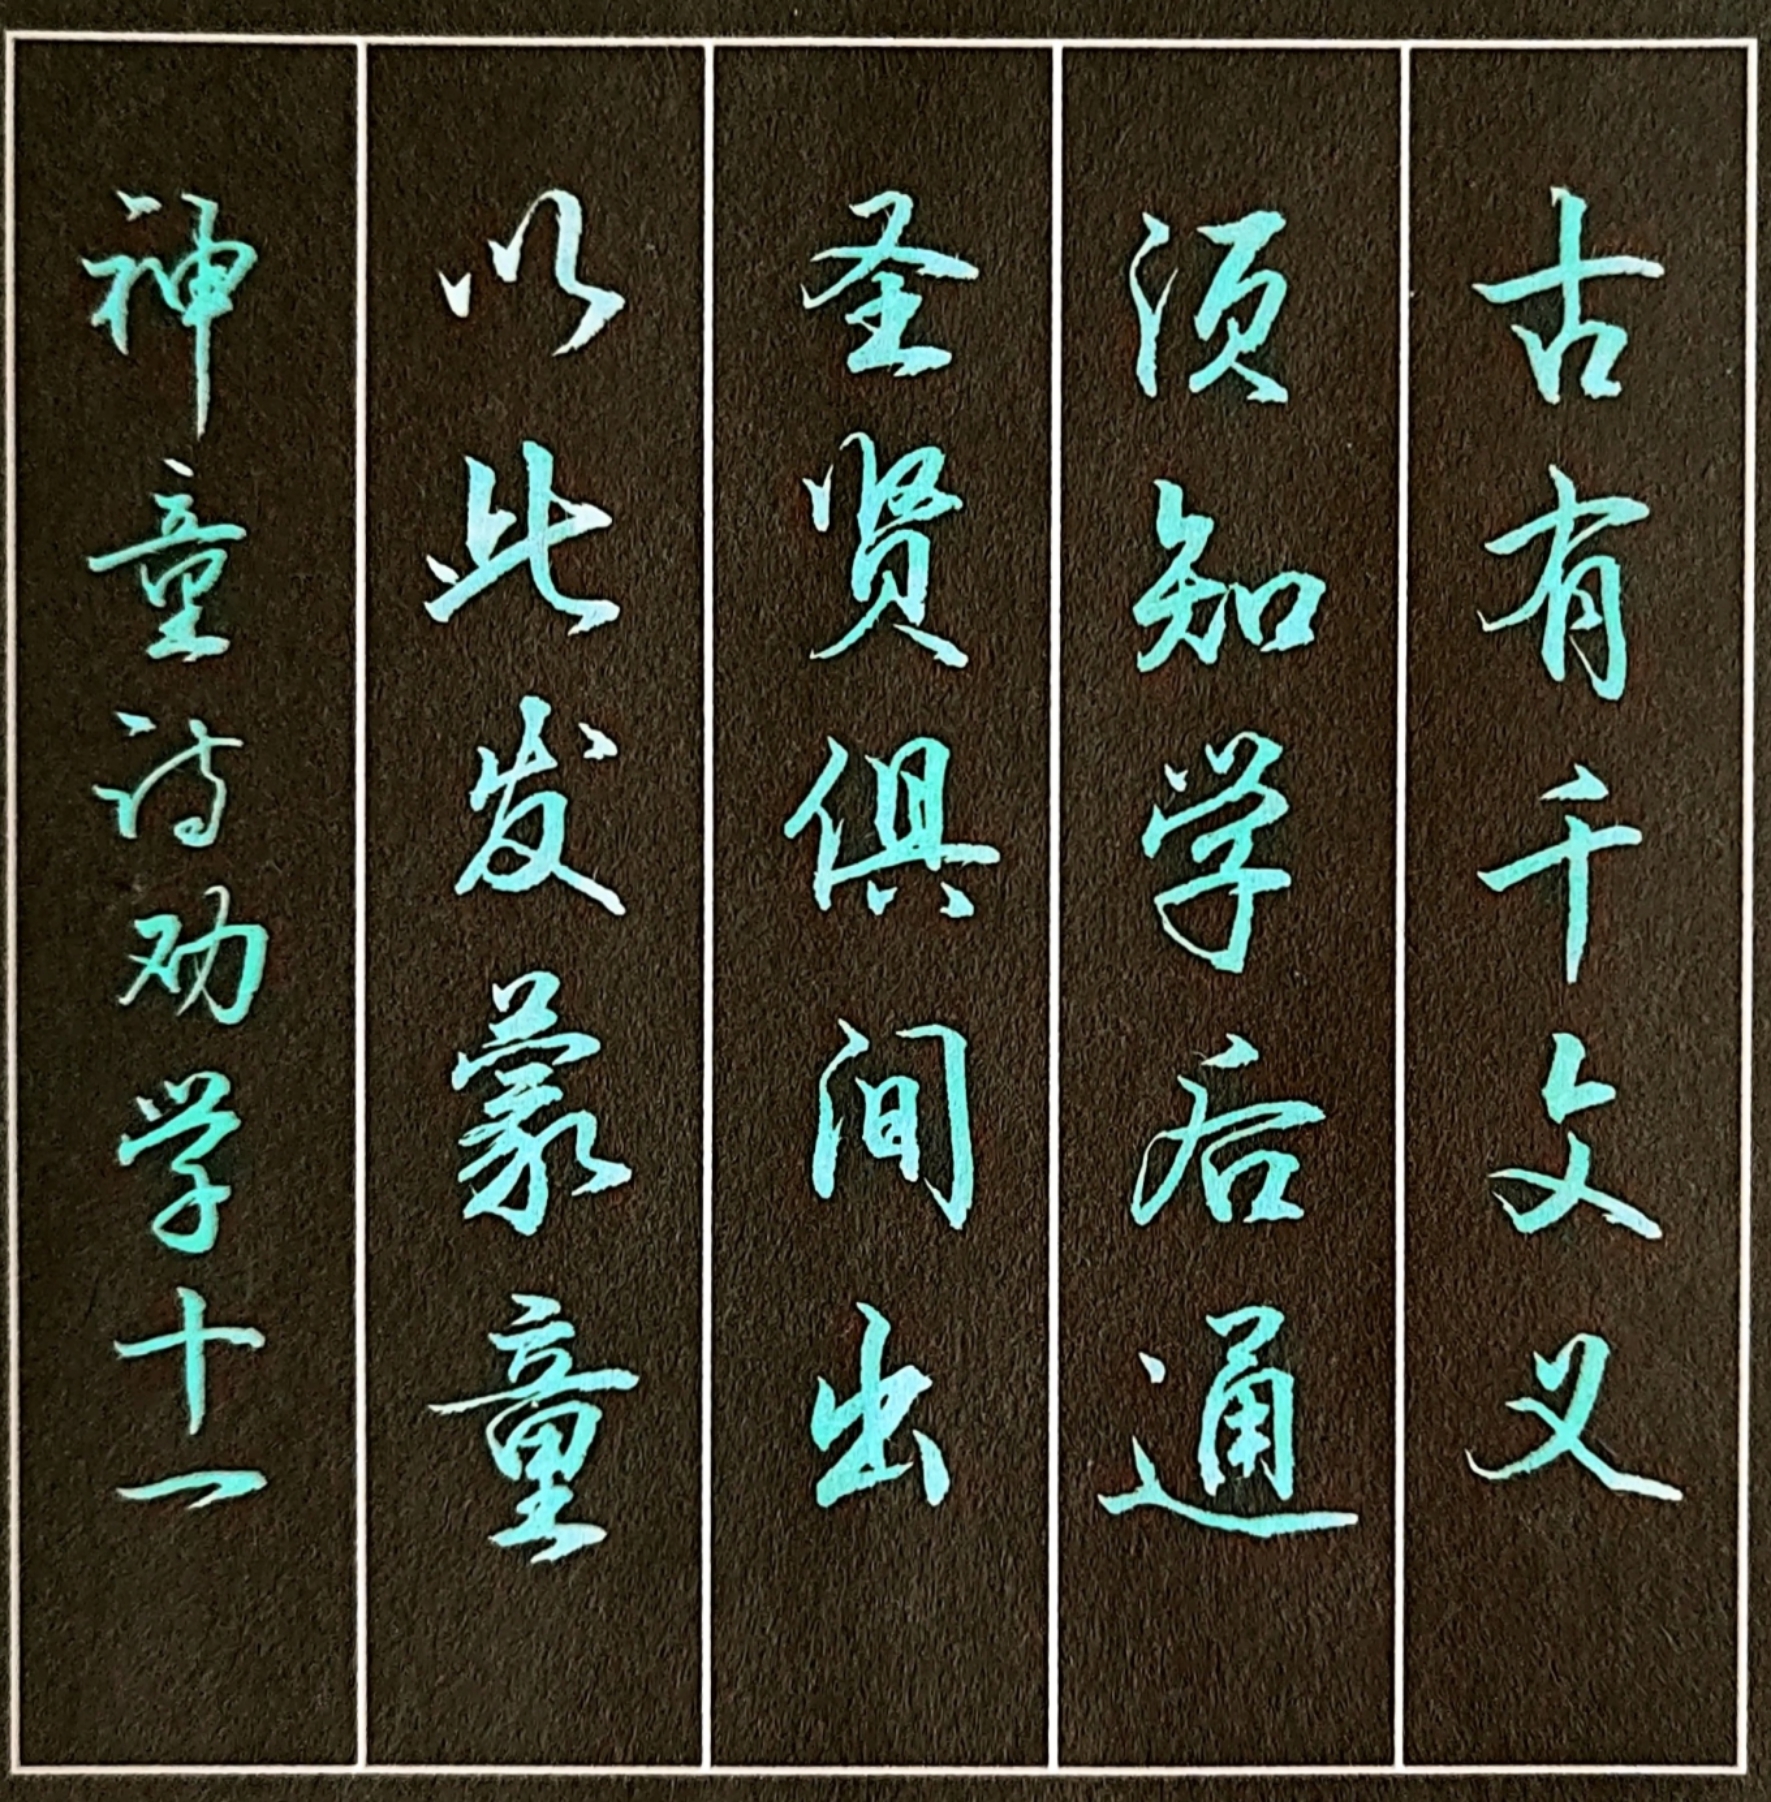 古有千文义
须知学后通
圣贤俱间出
以此发蒙童
神童诗劝学十一